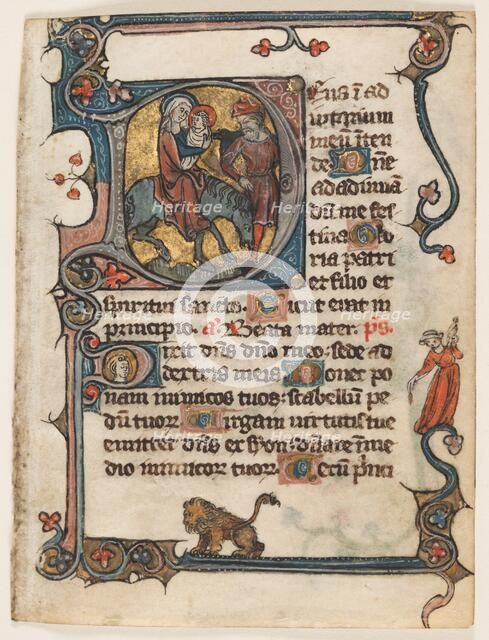 Deus ī ad
iutorium
meū īten
de Dñe
ad adiuuā
dū me fes
tina Glo
ria patri
et filio et
spiritui sancto. Sicut erat in
principio. a. Beata mater. ps.
Dixit dñs dño meo. sede ad
dextris meis Donec po
nam inimicos tuos: scabellū pe
dū tuoꝝ Virgam virtutis tue
emittet dñs ex syon: dñare ī me
dio inimicoꝝ tuoꝝ Tecū pͥnci
Heritage Heritage
Heritage Heritage